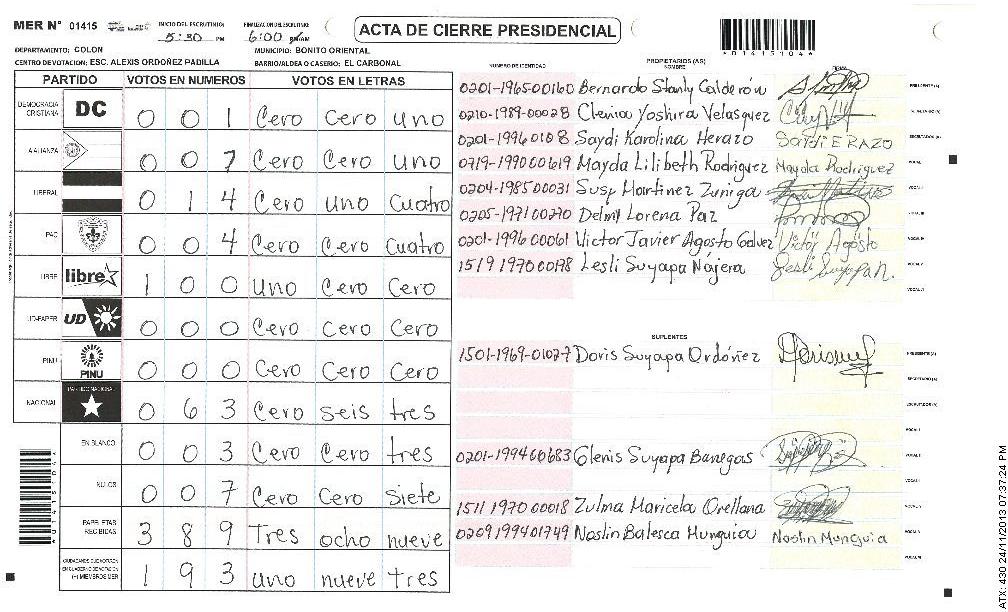 MER N° 01415 INICIO DEL ESCRUTINIO: 5:30 PM FINALIZACION DEL ESCRUTINIO: 6:00 PM/AM ACTA DE CIERRE PRESIDENCIAL *01415104*
DEPARTAMENTO: COLON MUNICIPIO: BONITO ORIENTAL
CENTRO DE VOTACION: ESC. ALEXIS ORDOÑEZ PADILLA BARRIO/ALDEA O CASERIO: EL CARBONAL
PARTIDO VOTOS EN NUMEROS VOTOS EN LETRAS
DEMOCRACIA CRISTIANA DC 0 0 1 Cero Cero uno
ALIANZA 0 0 7 Cero Cero uno
LIBERAL 0 1 4 Cero uno Cuatro
PAC 0 0 4 Cero Cero Cuatro
LIBRE libre 1 0 0 uno Cero Cero
UD-FAPER UD 0 0 0 Cero Cero Cero
PINU PINU 0 0 0 Cero Cero Cero
NACIONAL PARTIDO NACIONAL 0 6 3 Cero seis tres
EN BLANCO 0 0 3 Cero Cero tres
NULOS 0 0 7 Cero Cero siete
PAPELETAS RECIBIDAS 3 8 9 Tres ocho nueve
CIUDADANOS QUE VOTARON EN CUADERNO DE VOTACION (+) MIEMBROS MER 1 9 3 uno nueve tres
PROPIETARIOS (AS)
NUMERO DE IDENTIDAD NOMBRE FIRMA
0201-1965-00160 Bernardo Stanly Calderón PRESIDENTE (A)
0210-1989-00028 Clenica Yoshira Velasquez SECRETARIO (A)
0201-1996 0108 Saydi Karolina Herazo Saydi ERAZO ESCRUTADOR (A)
0719-1990 00619 Mayda Lilibeth Rodriguez Mayda Rodriguez VOCAL I
0204-1985 00031 Susy Martinez Zuniga VOCAL II
0205-1971 00270 Delmy Lorena Paz VOCAL III
0201-1996 00061 Victor Javier Agosto Galvez Victor Agosto VOCAL IV
1519 1970 00198 Lesli Suyapa Nájera Lesli Suyapa N. VOCAL V
VOCAL VI
SUPLENTES
1501-1969-01027 Doris Suyapa Ordóñez PRESIDENTE (A)
SECRETARIO (A)
ESCRUTADOR (A)
VOCAL I
0201-1994 00683 Glenis Suyapa Banegas VOCAL II
VOCAL III
1511 1970 00018 Zulma Maricela Orellana VOCAL IV
0209 1994 01749 Noslin Balesca Munguia Noslin Munguia VOCAL V
VOCAL VI
*01415104*
ATX: 430 24/11/2013 07:37:24 PM